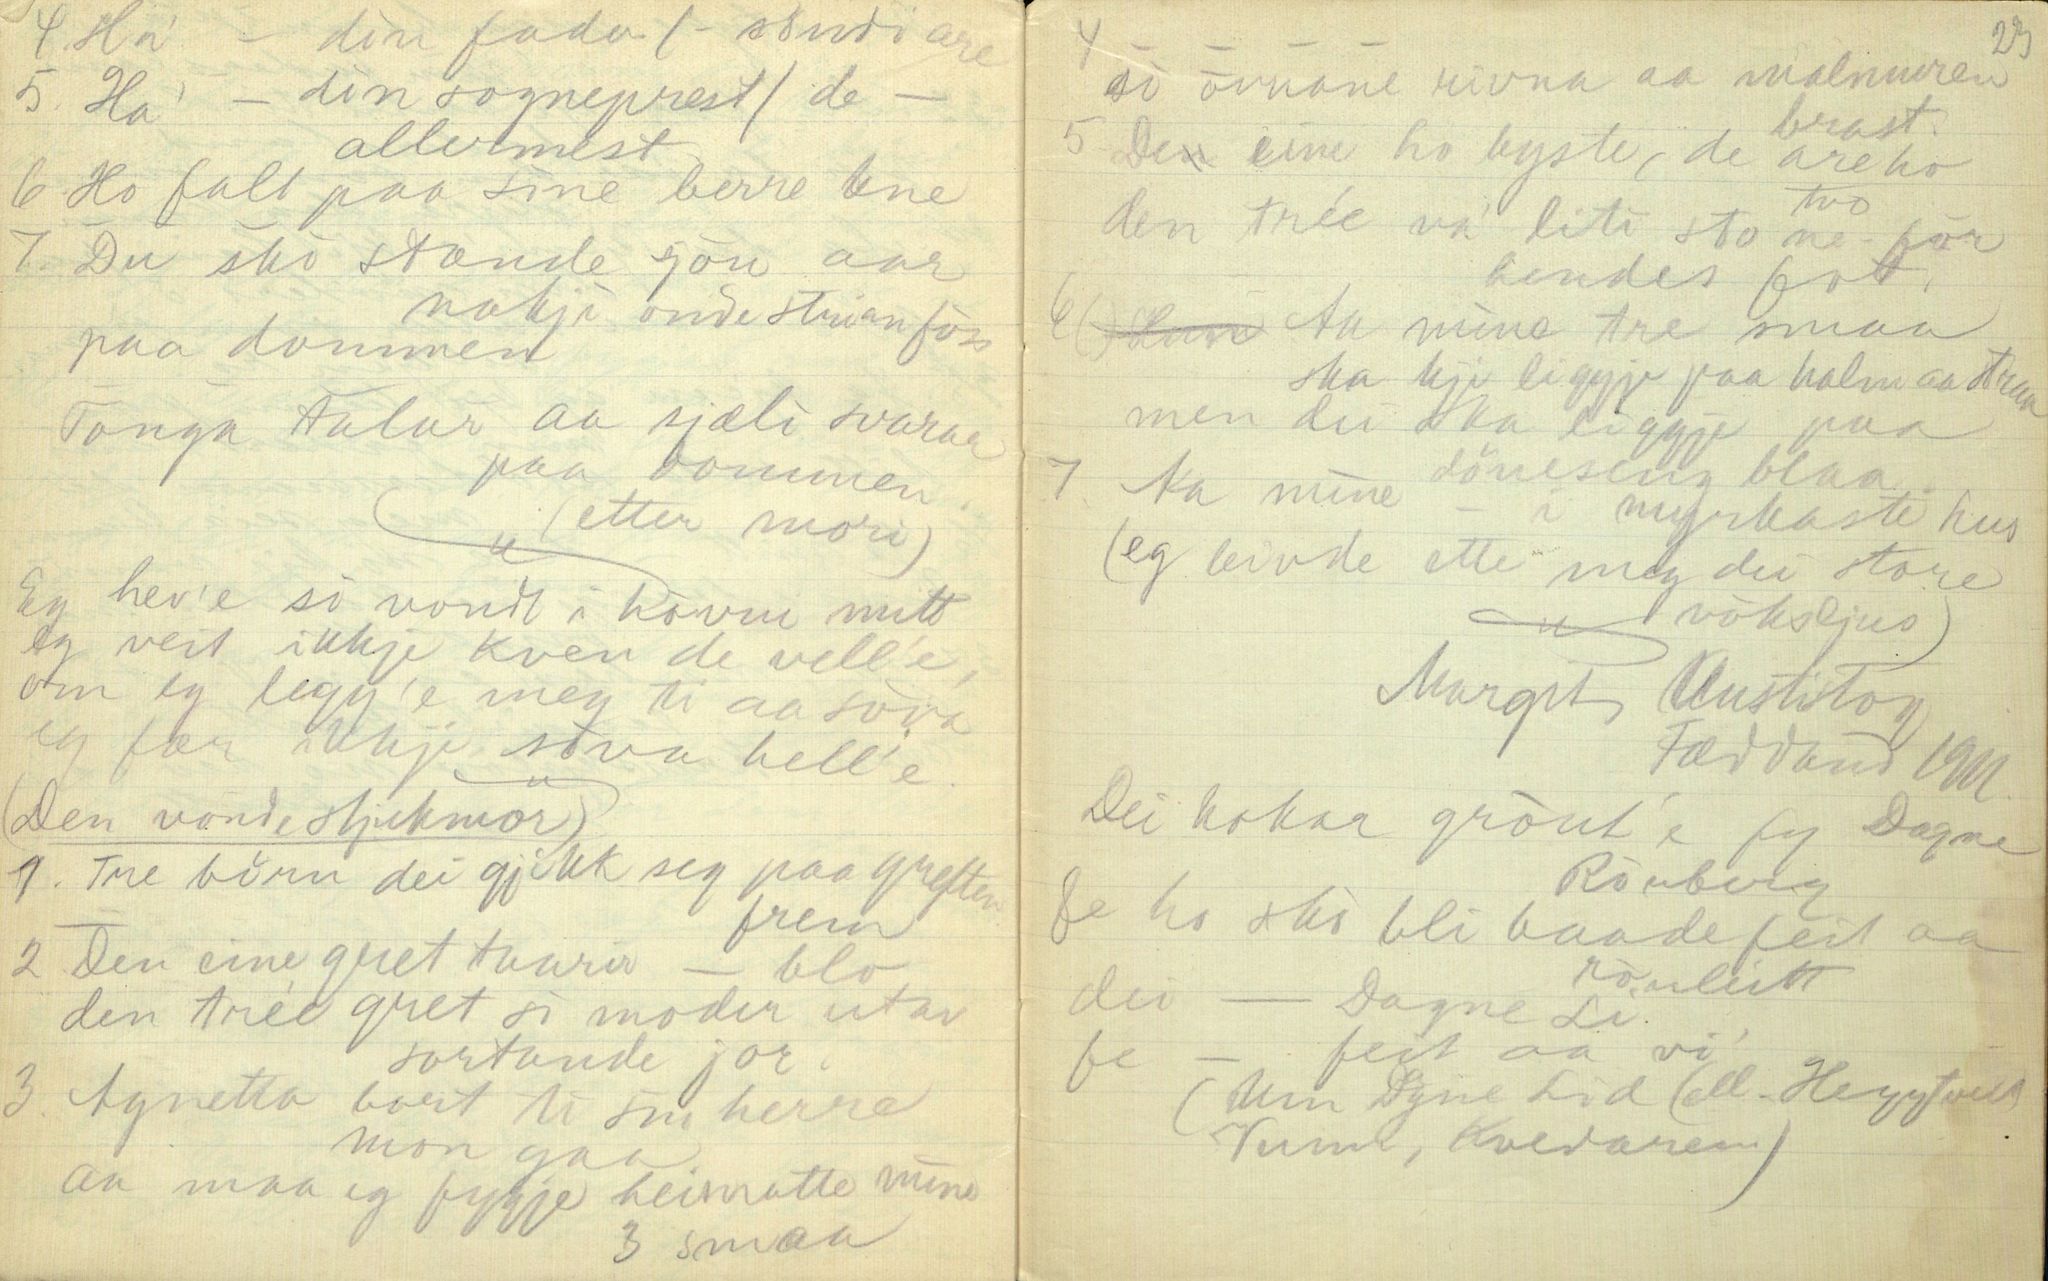 4 Ha' – din fader /- sondi are
5. Ha' – din sogneprest / de –
allermest
6 Ho fall paa sine berre kne
7. Du sko stande sjøu aar
nokji onde strian foss
paa dommen
Tonga talar aa sjæli svaraa
paa dommen.
(etter mori)
Eg hev'e so vondt i hovui mitt
eg veit ikkje kven de vell'e,
om eg legg'e meg ti aa sova
eg fær ikkje sova hell'e.
(Den vonde stjukmor)
1. Tre born dei gjikk seg paa greften
frem
2 Den eine gret taarir – blo
den trée gret si moder utav
sortande jor.
3. Agnetta bort ti sin herre
mon gaa
aa maa eg fygje heimatte mine
3 smaa
23
4 – – – –
so ovnane rivna aa malmuren
brast.
5 Den eine ho kyste, de are ho
two
den trée va' liti sto ne for
hendes fot.
6 () Aa mine tre smaa
ska kji liggje paa halm aa straa
men du ska liggje paa
døneseng blaa.
7. Aa mine – i myrkaste hus
(eg leivde ette meg dei store
voksljus)
Margit
Fæddand 1911.
Dei kokar grönt'e fy Dagne
Rönberg
fe ho sko bli baade feit aa
rönleitt
dei — Dagne Li
fe – feit aa vi'
(Um Dagne Lid (ell. Heggtveit
Vum, Kvedarem)